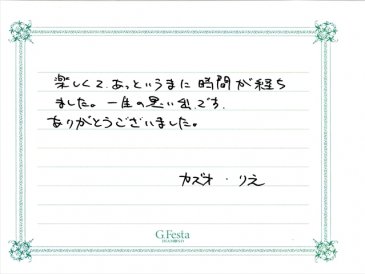 楽しくて、あっというまに時間が経ち
ました。一生の思い出です。
ありがとうございました。
カズオ・りえ
G.Festa
DIAMOND